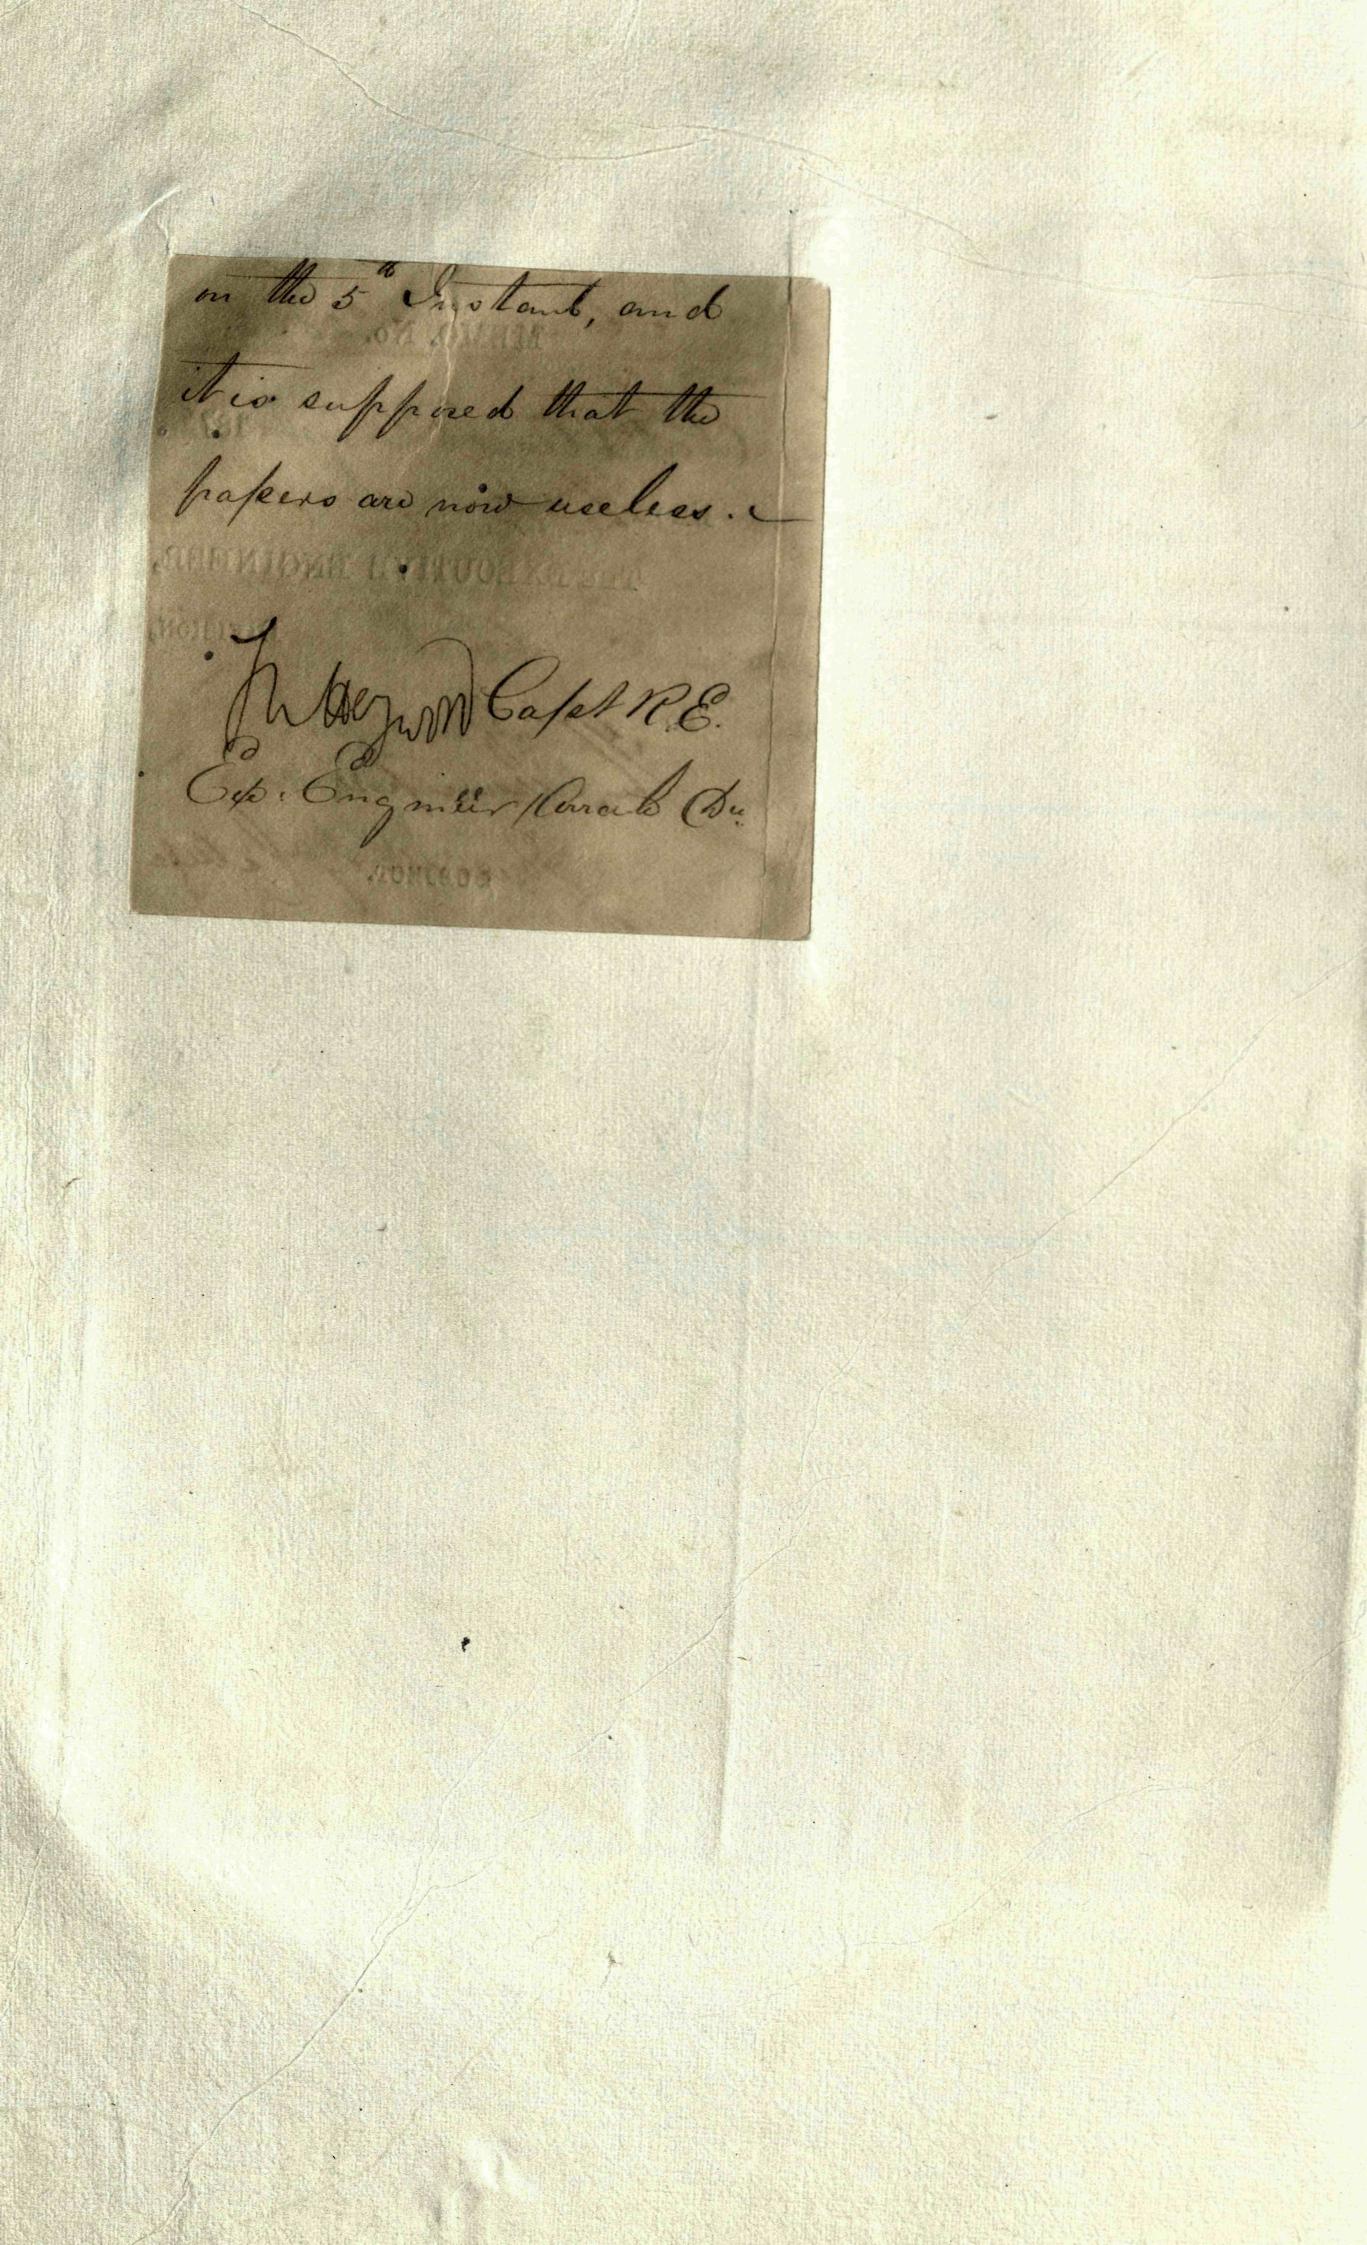 on the 5th Instant, and
it is supposed that the
papers are now useless.
Heywood Capt R.E.
Ex. Engineer